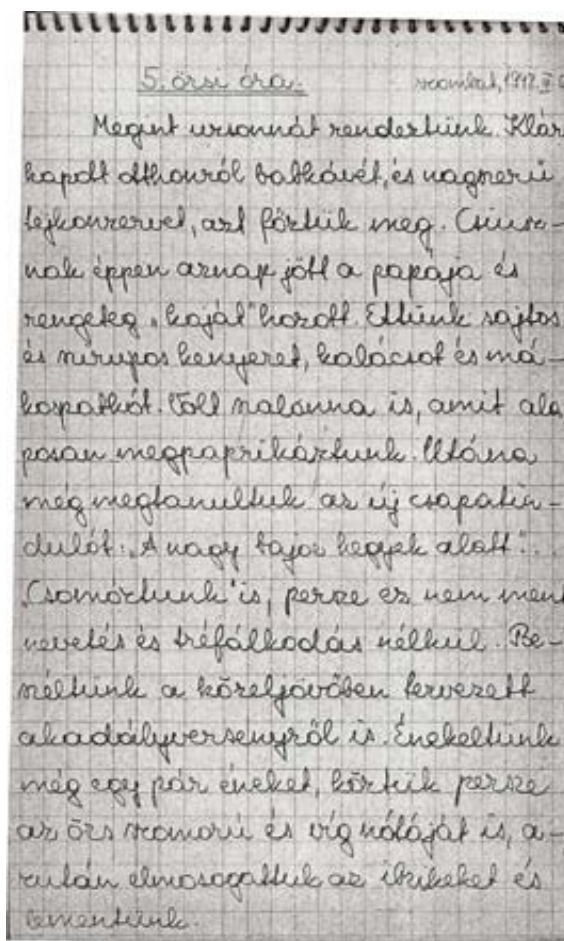 5. örsi óra. szombat, 1912. II.
Megint uzsonnát rendeztünk. Klár
kapott otthonról babkávét, és nagyszerű
tejkonzervet, azt főztük meg. Csiusz-
nak éppen aznap jött a papája és
rengeteg „kaját” hozott. Ettünk sajtos
és szirupos kenyeret, kalácsot és má-
kospatkót. Volt szalonna is, amit ala
posan megpaprikáztunk. Utána
még megtanultuk az új csapatin-
dulót: „A nagy bajor hegyek alatt”...
„Csomóztunk” is, persze ez nem ment
nevetés és tréfálkodás nélkül. Be-
széltünk a közeljövőben tervezett
akadályversenyről is. Énekeltünk
még egy pár éneket, köztük persze
az őrs szomorú és víg nótáját is, a-
zután elmosogattuk az ibrikeket és
lementünk.